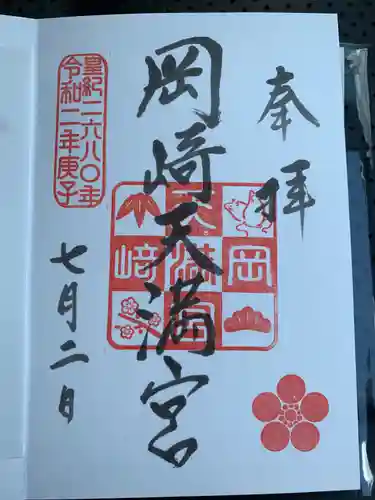 奉拝
岡崎天満宮
岡﨑天満宮
皇紀二六八〇年
令和二年庚子
七月二日